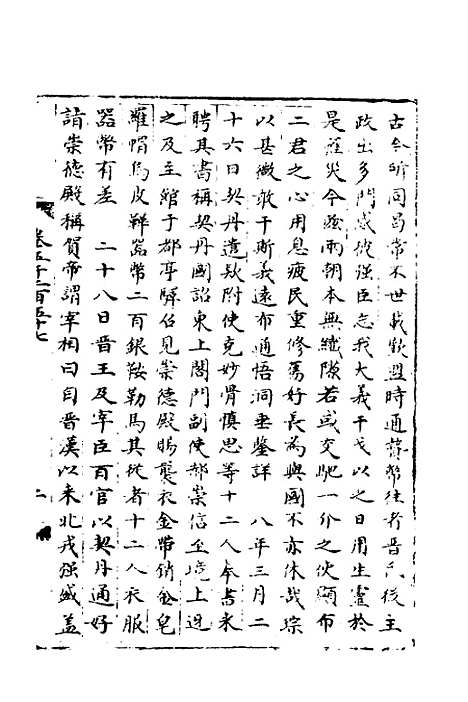 古今所同曷常不世載歡盟時通贄幣往者晉氏後主
政出多門惑彼强臣忘我大義干戈以之日用生靈於
是罹災今玆兩朝本無纖隙若或交馳一介之使顯布
二君之心用息疲民重修舊好長為與國不亦休哉琮
以甚微敢干斯義遠布通悟洞垂鑒詳　八年三月二
十六日契丹遣款附使克妙骨慎思等十二人奉書來
聘其書稱契丹國詔東上閤門副使郝崇信至境上迓
之及至館于都亭驛召見崇德殿賜襲衣金帶銷金皂
羅帽烏皮鞾器幣二百銀鞍勒馬其從者十二人衣服
器幣有差　二十八日晉王及宰臣百官以契丹通好
詣崇德殿稱賀帝謂宰相曰自晉漢以來北戎强盛蓋
卷五千二百五十七